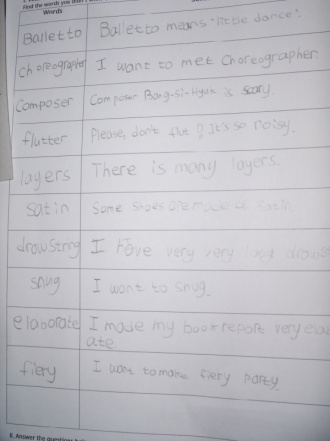 Find the words you didn't
Words
Balletto Balletto means "little dance".
choreographer I want to met Choreographer.
Composer Composer Bang-Si-Hyuk is scary.
flutter Please, don't flut! It's so noisy.
layers There is many layers.
satin Some shoes are made of satin
drawstring I have very very long draws
snug I want to snug.
elaborate I made my book report very elab
ate.
fiery I want to make fiery party.
II. Answer the questions